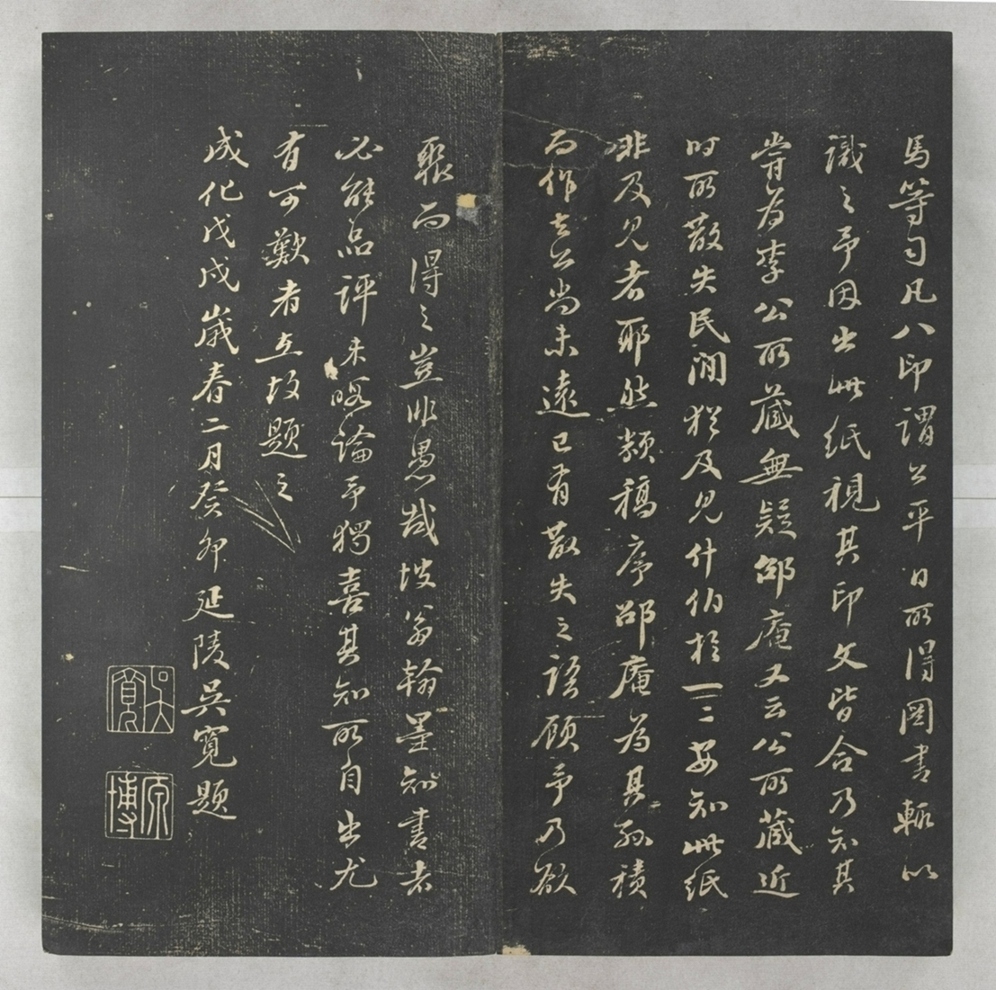 馬等句凡八印謂公平日所得圖書輒以
識之予因出此紙視其印文皆合乃知其
嘗為李公所藏無疑邵庵又云公所藏近
時所散失民間猶及見什伯於一二安知此紙
非及見者耶然類稿序邵庵為其孫積
而作去公尚未遠已有散失之語顧予乃欲
聚而得之豈非愚哉坡翁翰墨知書者
必能品評未暇論予獨喜其知所自出尤
有可歎者在故題之
成化戊戌歲春二月癸卯延陵吳寬題
吳寬
原博